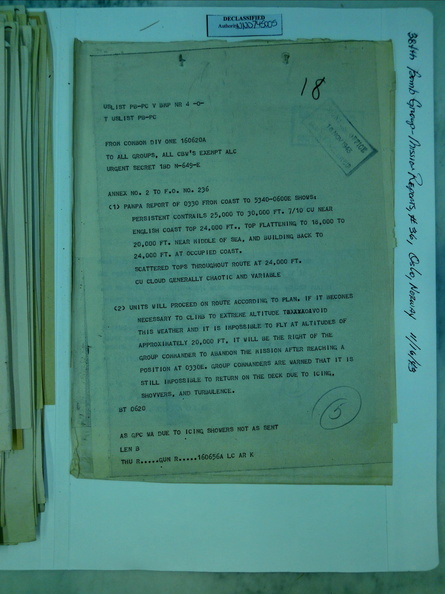 DECLASSIFIED
Authority NND 745005
18
UBLIST PG-PC V BMP NR 4 -O-
T UBLIST PG-PC
FROM COMBOM DIV ONE 160620A
TO ALL GROUPS, ALL CBW'S EXEMPT ALC
URGENT SECRET 1BD M-649-E
ANNEX NO. 2 TO F.O. NO. 236
(1) PAMPA REPORT OF 0330 FROM COAST TO 5340-0600E SHOWS:
PERSISTENT CONTRAILS 25,000 TO 30,000 FT. 7/10 CU NEAR
ENGLISH COAST TOP 24,000 FT., TOP FLATTENING TO 18,000 TO
20,000 FT. NEAR MIDDLE OF SEA, AND BUILDING BACK TO
24,000 FT. AT OCCUPIED COAST.
SCATTERED TOPS THROUGHOUT ROUTE AT 24,000 FT.
CU CLOUD GENERALLY CHAOTIC AND VARIABLE
(2) UNITS WILL PROCEED ON ROUTE ACCORDING TO PLAN. IF IT BECOMES
NECESSARY TO CLIMB TO EXTREME ALTITUDE AVOID
THIS WEATHER AND IT IS IMPOSSIBLE TO FLY AT ALTITUDES OF
APPROXIMATELY 20,000 FT, IT WILL BE THE RIGHT OF THE
GROUP COMMANDER TO ABANDON THE MISSION AFTER REACHING A
POSITION AT 0330E. GROUP COMMANDERS ARE WARNED THAT IT IS
STILL IMPOSSIBLE TO RETURN ON THE DECK DUE TO ICING,
SHOVVERS, AND TURBULENCE.
BT 0620
5
AS GPC WA DUE TO ICING SHOWERS NOT AS SENT
LEM B
THU R.....GUN R.....160656A LC AR K
384th Bomb Group - Mission Reports, # 36, Oslo, Norway 11/16/43